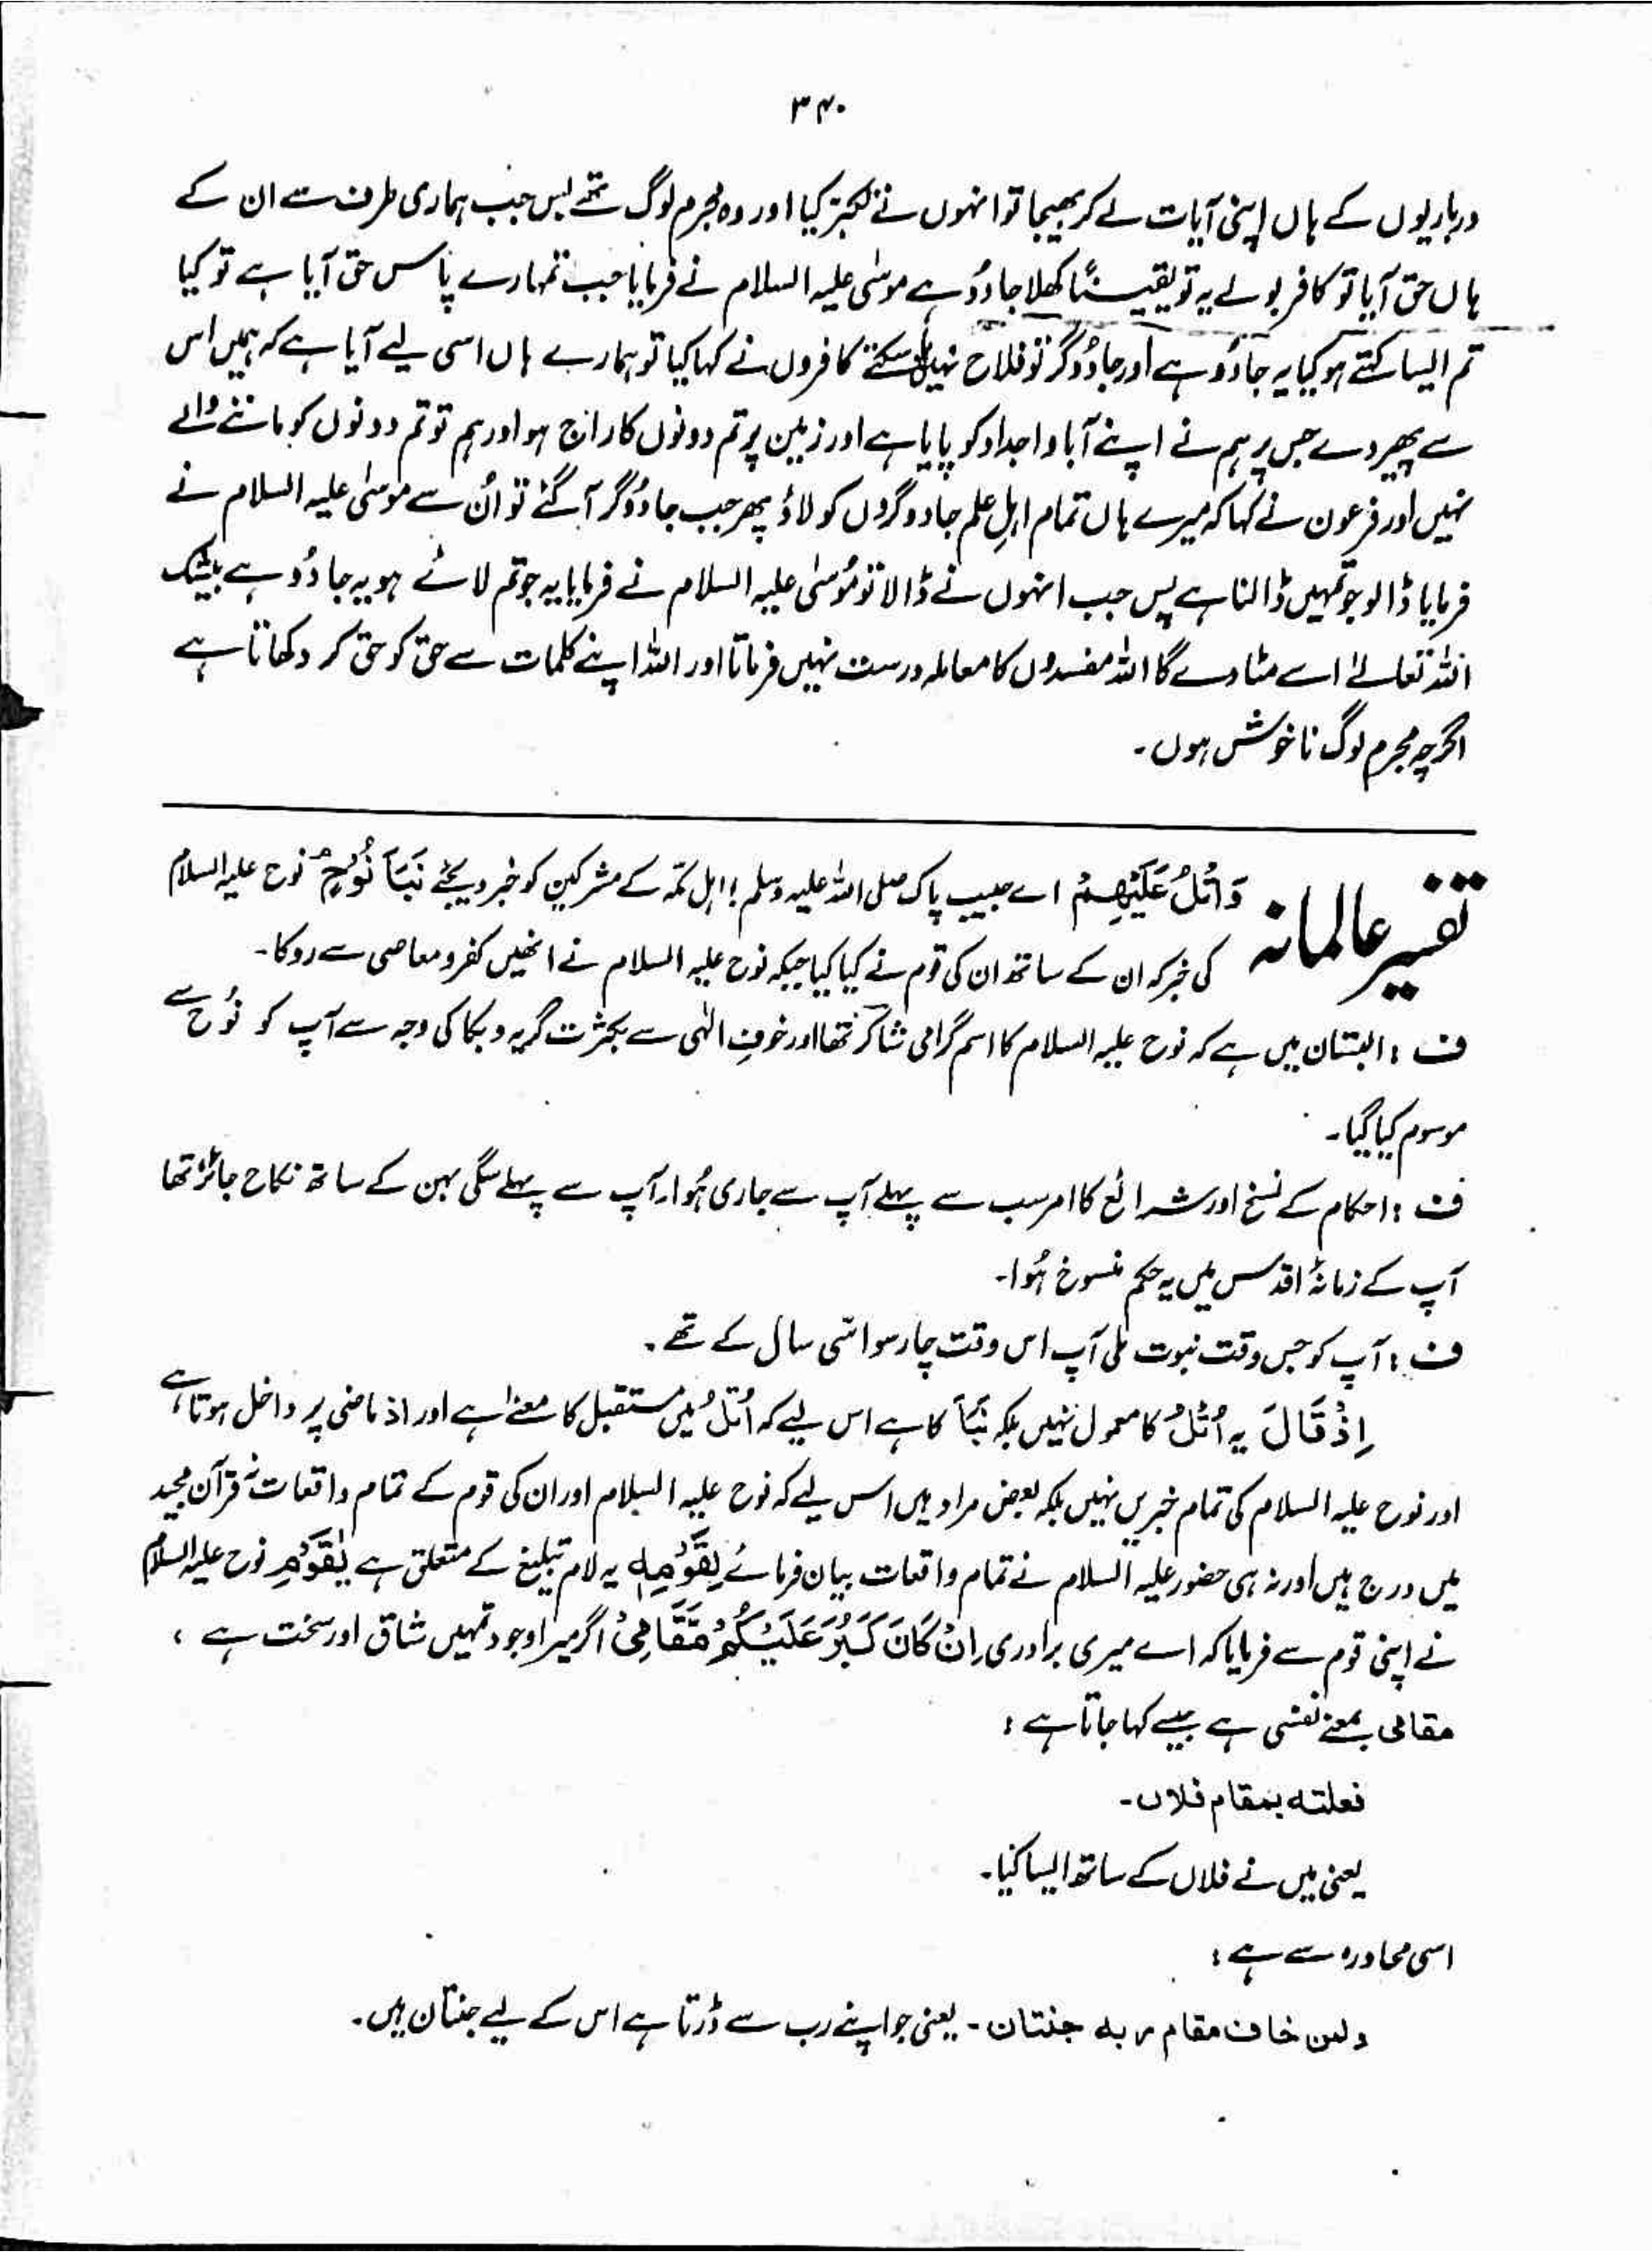 ۳۴۰
درباریوں کے ہاں اپنی آیات لے کر بھیجا تو انہوں نے تکبر کیا اور وہ مجرم لوگ تھے پس جب ہماری طرف سے ان کے
ہاں حق آیا تو کافر بولے یہ تو یقیناً کھلا جادُو ہے موسٰی علیہ السلام نے فرمایا جب تمہارے پاس حق آیا ہے تو کیا
تم ایسا کہتے ہو کیا یہ جادُو ہے اور جادُوگر تو فلاح نہیں پا سکتے کافروں نے کہا کیا تو ہمارے ہاں اسی لیے آیا ہے کہ ہمیں اس
سے پھیر دے جس پر ہم نے اپنے آبا و اجداد کو پایا ہے اور زمین پر تم دونوں کا راج ہو اور ہم تو تم دونوں کو ماننے والے
نہیں اور فرعون نے کہا کہ میرے ہاں تمام اہلِ علم جادوگروں کو لاؤ پھر جب جادُوگر آ گئے تو اُن سے موسٰی علیہ السلام نے
فرمایا ڈالو جو تمہیں ڈالنا ہے پس جب انہوں نے ڈالا تو مُوسٰی علیہ السلام نے فرمایا یہ جو تم لائے ہو یہ جادُو ہے بیشک
اللہ تعالےٰ اسے مٹا دے گا اللہ مفسدوں کا معاملہ درست نہیں فرماتا اور اللہ اپنے کلمات سے حق کو حق کر دکھاتا ہے
اگرچہ مجرم لوگ ناخوش ہوں۔
تفسیر عالمانہ
وَاتْلُ عَلَيْهِمْ اے حبیب پاک صلی اللہ علیہ وسلم! اہل مکّہ کے مشرکین کو خبر دیجئے نَبَاَ نُوْحٍ نوح علیہ السلام
کی خبر کہ ان کے ساتھ ان کی قوم نے کیا کیا جبکہ نوح علیہ السلام نے انھیں کفر و معاصی سے روکا۔
ف : البستان میں ہے کہ نوح علیہ السلام کا اسم گرامی شاکر تھا اور خوفِ الٰہی سے بکثرت گریہ و بکا کی وجہ سے آپ کو نُوح سے
موسوم کیا گیا۔
ف : احکام کے نسخ اور شرائع کا امر سب سے پہلے آپ سے جاری ہُوا۔ آپ سے پہلے سگی بہن کے ساتھ نکاح جائز تھا
آپ کے زمانۂ اقدس میں یہ حکم منسوخ ہُوا۔
ف : آپ کو جس وقت نبوت ملی آپ اس وقت چار سو اسّی سال کے تھے۔
اِذْ قَالَ یہ اُتْلُ کا معمول نہیں بلکہ نَبَاَ کا ہے اس لیے کہ اُتْلُ میں مستقبل کا معنےٰ ہے اور اذ ماضی پر داخل ہوتا ہے
اور نوح علیہ السلام کی تمام خبریں نہیں بلکہ بعض مراد ہیں اس لیے کہ نوح علیہ السلام اور ان کی قوم کے تمام واقعات نہ قرآن مجید
میں درج ہیں اور نہ ہی حضور علیہ السلام نے تمام واقعات بیان فرمائے لِقَوْمِهٖ یہ لام تبلیغ کے متعلق ہے يٰقَوْمِ نوح علیہ السلام
نے اپنی قوم سے فرمایا کہ اے میری برادری اِنْ كَانَ كَبُرَ عَلَيْكُمْ مَّقَامِيْ اگر میرا وجود تمہیں شاق اور سخت ہے ،
مقامی بمعنے نفسی ہے جیسے کہا جاتا ہے :
فعلته بمقام فلان۔
یعنی میں نے فلاں کے ساتھ ایسا کیا۔
اسی محاورہ سے ہے :
ولمن خاف مقام ربه جنتان۔ یعنی جو اپنے رب سے ڈرتا ہے اس کے لیے جنتان ہیں۔